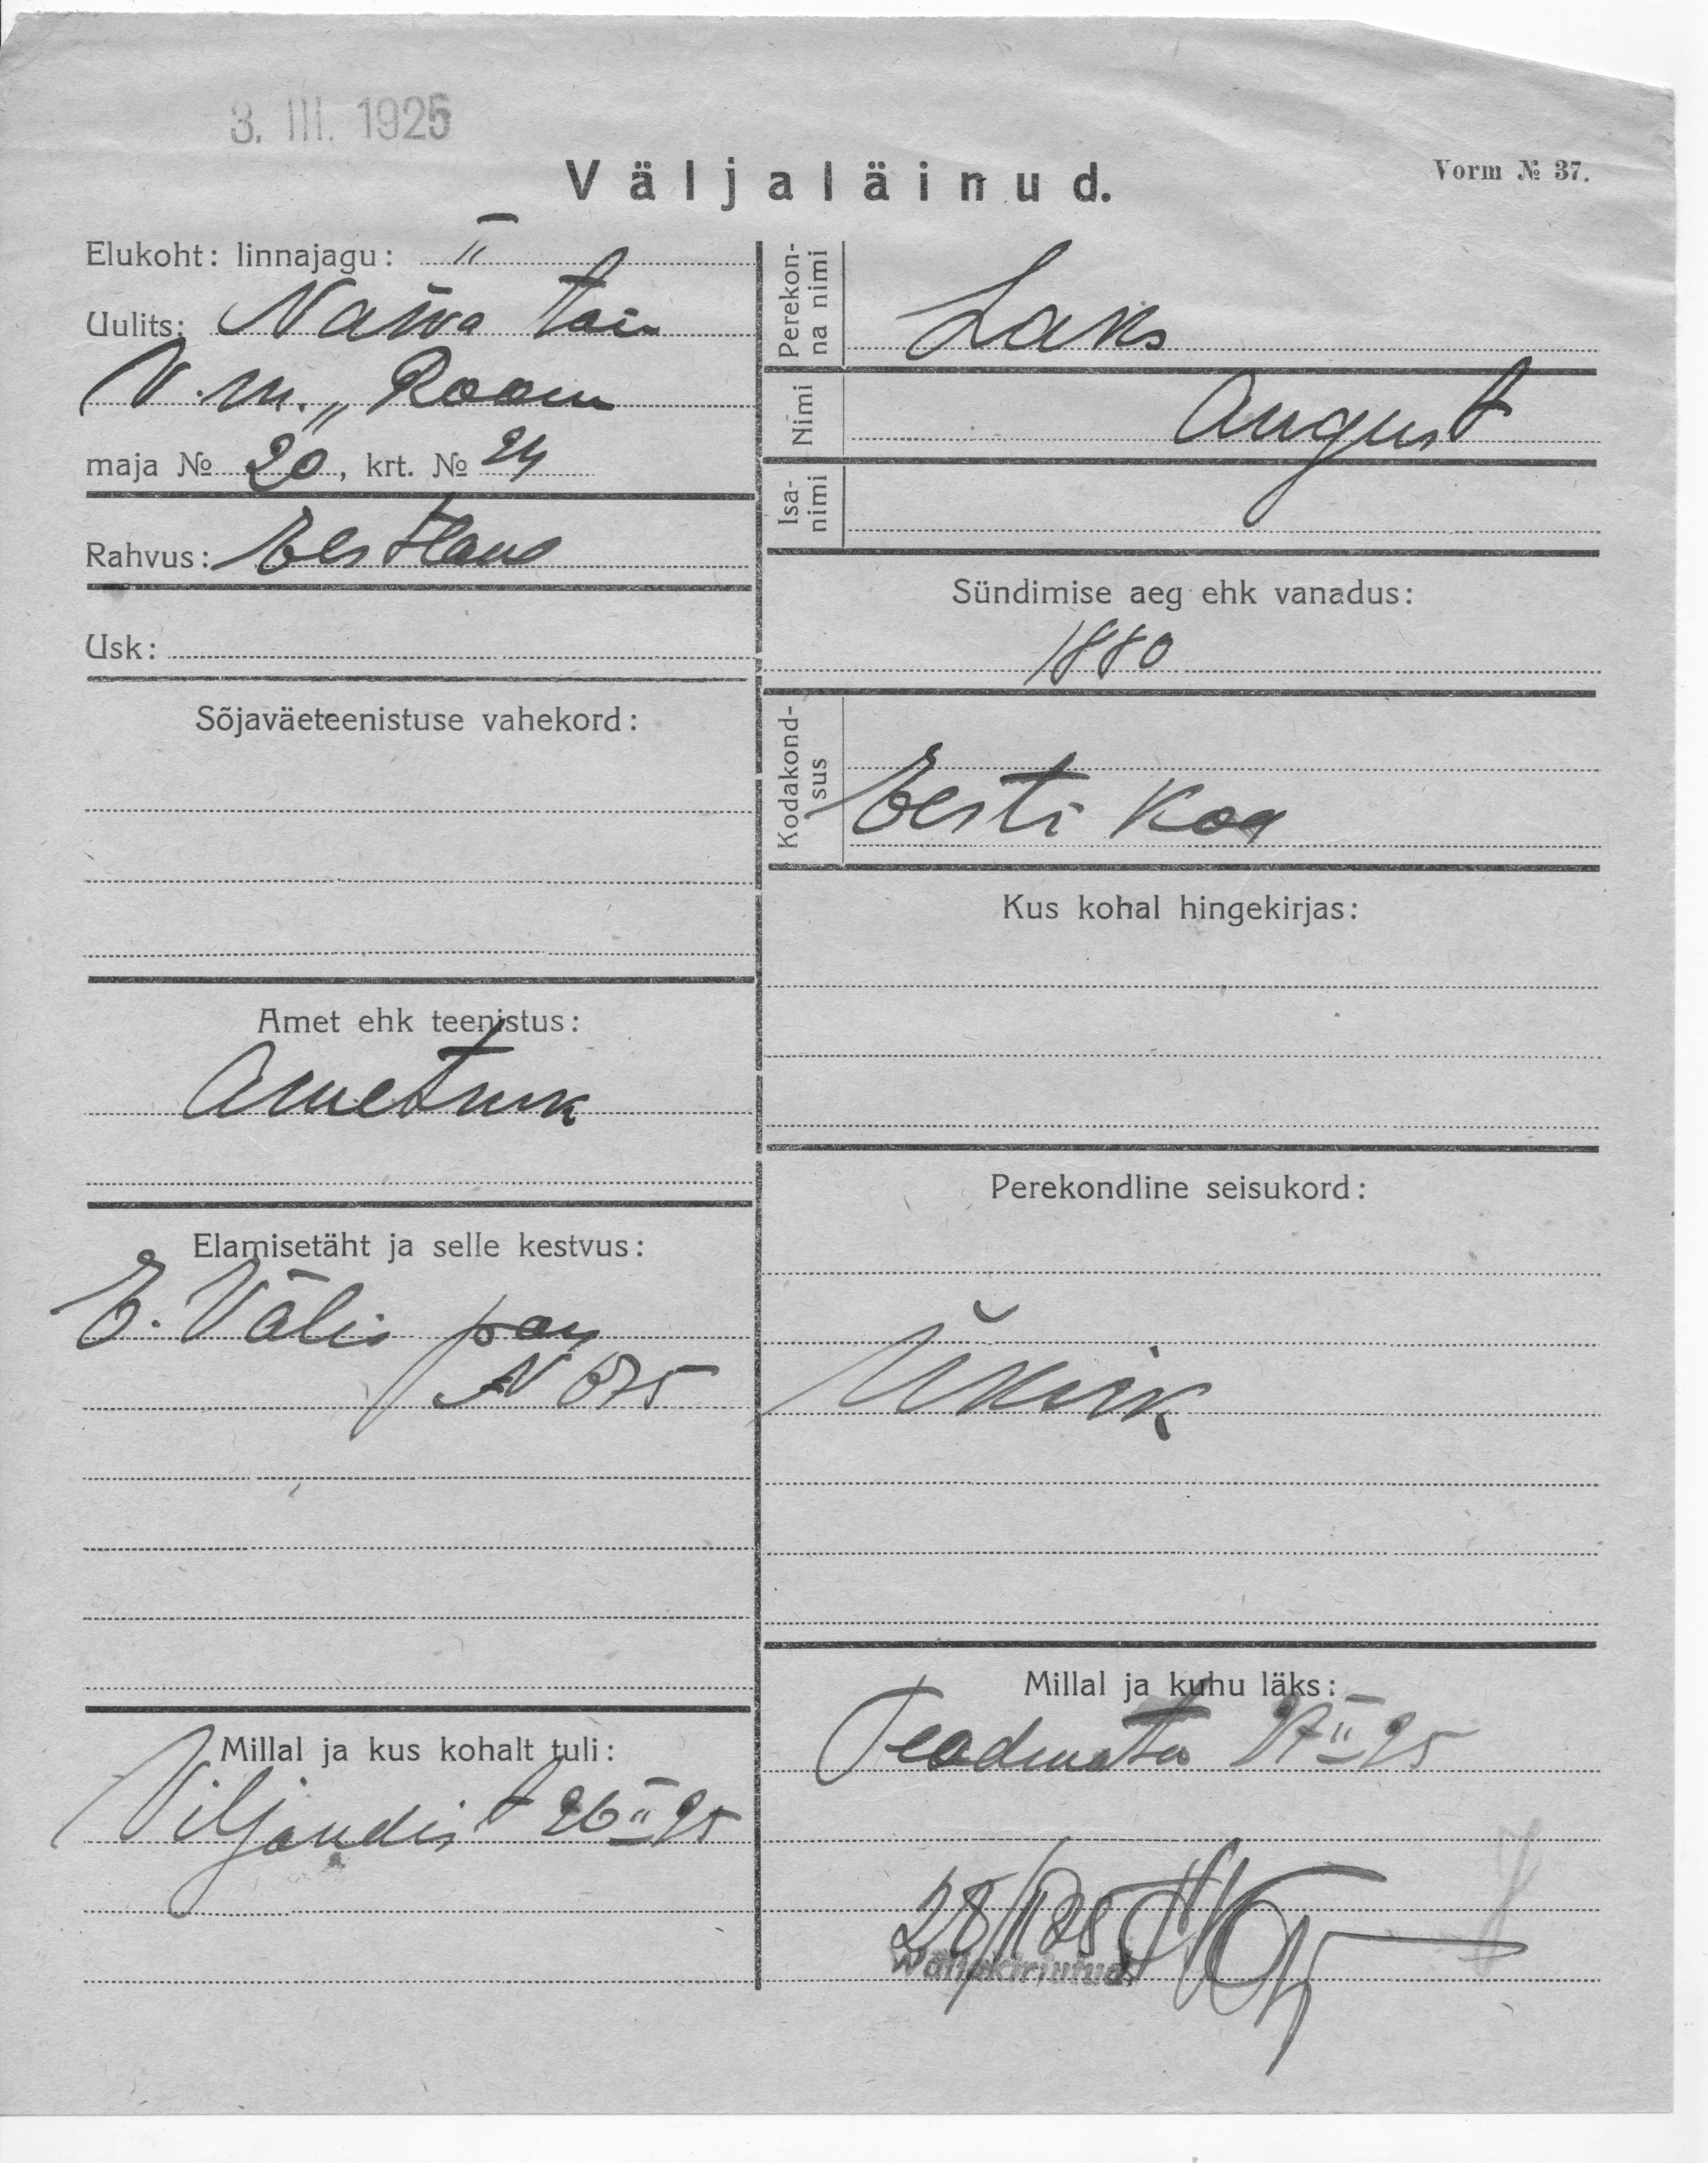 3. III. 1925
Väljaläinud.
Vorm № 37.
Elukoht: linnajagu: II
Uulits:
V. m. „Room
maja № 20, krt. № 24
Rahvus: Eestlane
Usk:
Sõjaväeteenistuse vahekord:
Amet ehk teenistus:
Ametnik
Elamisetäht ja selle kestvus:
E. Välis pas
N 675
Millal ja kus kohalt tuli:
Viljandist 26 II 25
Perekon-
na nimi
Laks
Nimi
August
Isa-
nimi
Sündimise aeg ehk vanadus:
1880
Kodakond-
sus
Eesti Kod
Kus kohal hingekirjas:
Perekondline seisukord:
Üksik
Millal ja kuhu läks:
Teadmata 27 II 25
28/II 25
Wäljakirjutud.